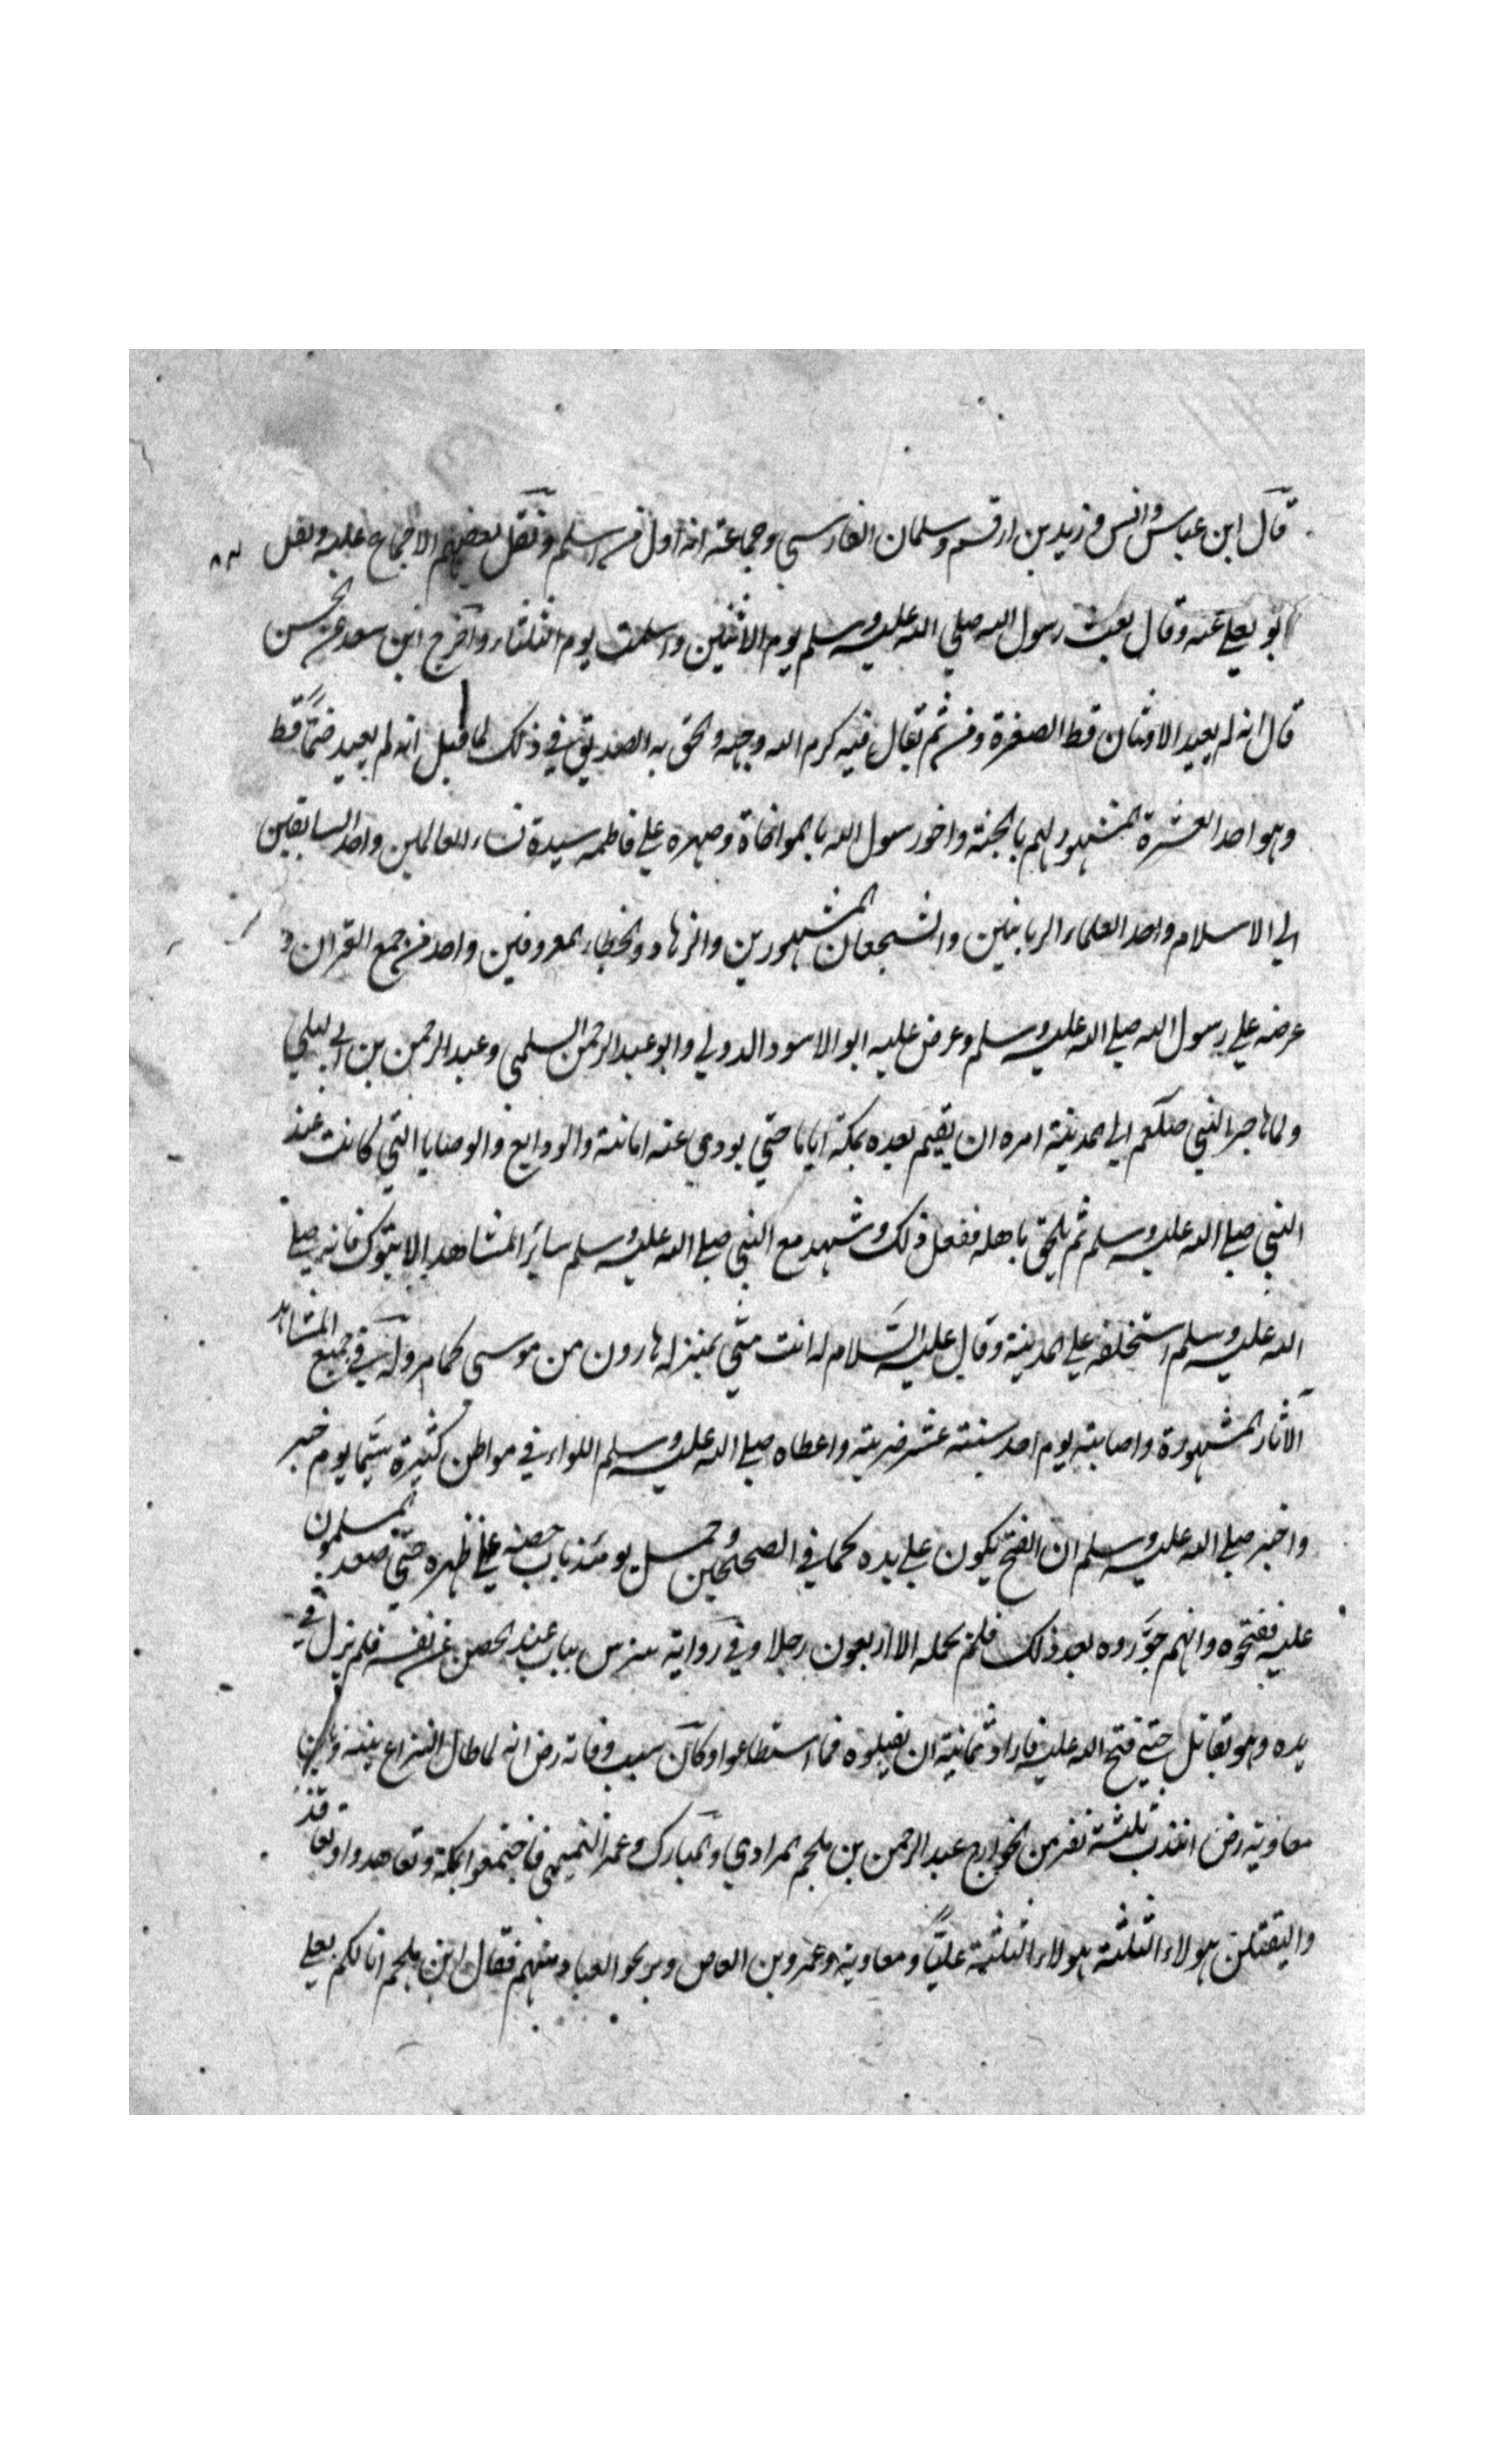 قال ابن عباس وانس وزيد بن ارقم وسلمان الفارسي وجماعة انه اول من اسلم ونقل بعضهم الاجماع عليه ونقل
ابو يعلى عنه وقال بعث رسول الله صلي الله عليه وسلم يوم الاثنين واسلمت يوم الثلثاء واخرج ابن سعد عن الحسن
قال انه لم يعبد الاوثان قط الصغره ومن ثم يقال فيه كرم الله وجهه والحق به الصديق في ذلك لما قيل انه لم يعبد صنما قط
وهو احد العشرة المشهود لهم بالجنة واخو رسول الله بالمواخاة وصهره علي فاطمه سيدة نساء العالمين واحد السابقين
الي الاسلام واحد العلماء الربانيين والشجعان المشهورين والزهاد والخطباء المعروفين واحد من جمع القران و
عرضه علي رسول الله صلي الله عليه وسلم وعرض عليه ابو الاسود الدولي وابو عبد الرحمن السلمي وعبد الرحمن بن ابي ليلي
ولما هاجر النبي صلعم الي المدينة امره ان يقيم بعده بمكة اياما حتي يودي عنه امانته والودايع والوصايا التي كانت عند
النبي صلي الله عليه وسلم ثم يلحق باهله ففعل ذلك وشهد مع النبي صلي الله عليه وسلم ساير المشاهد الا تبوك فانه صلي
الله عليه وسلم استخلفه علي المدينة وقال عليه السلام له انت مني بمنزله هارون من موسي كما مر وله في جميع المشاهد
الاثار المشهورة واصابته يوم احد ستة عشر ضربة واعطاه صلي الله عليه وسلم اللواء في مواطن كثيرة سيما يوم خيبر
واخبر صلي الله عليه وسلم ان الفتح يكون علي يده كما في الصحيحين وحمل يومئذ باب حصنه علي ظهره حتي صعد المسلمون
عليه ففتحوه وانهم جروه بعد ذلك فلم يحمله الا اربعون رجلا وفي رواية تترس بباب عند الحصن عن نفسه فلم يزل في
يده وهو يقاتل حتي فتح الله عليه فاراد ثمانية ان يقلبوه فما استطاعوا وكان سبب وفاته رض انه لما طال النزاع بينه وبين
معاوية رض انتدب ثلثة نفر من الخوارج عبد الرحمن بن ملجم المرادي والمبارك وعمر التميمي فاجتمعوا بمكة وتعاهدوا وتعاقد
واليقتلن هولاء الثلثة هولاء الثلثة عليا ومعاوية وعمرو بن العاص ويريحو العباد منهم فقال ابن ملجم انا لكم بعلي